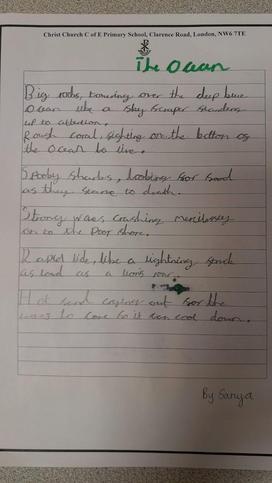 Christ Church C of E Primary School, Clarence Road, London, NW6 7TE
The Ocean
Big rocks, towering over the deep blue
Ocean like a sky scraper standing
up to attention.
Rough coral, fighting on the bottom of
the Ocean to live.
Spooky sharks, looking for food
as they to death.
Strong waves crashing mercilessly
on to the Poor shore.
Rapid tide, like a lightning
as loud as a lions roar.
Hot sand out for the
waves to come so it can cool down.
By Sanya